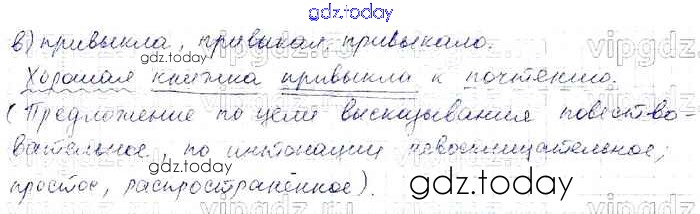 gdz.today
в) привыкла, привыкал, привыкало.
Хорошая книжка привыкла к почтению.
(Предложение по цели высказывания повество-
вательное, по интонации невосклицательное,
простое, распространённое).
gdz.today
gdz.today
gdz.today
gdz.today